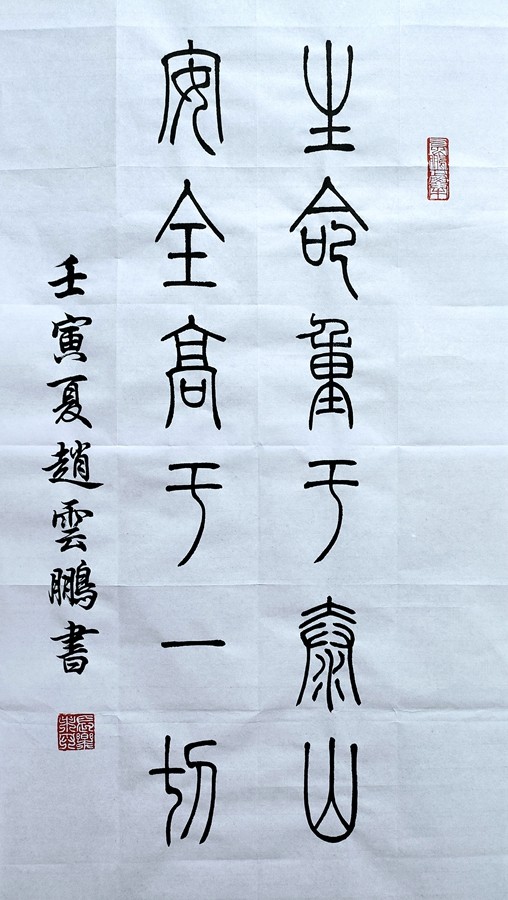 生命重于泰山
安全高于一切
壬寅夏趙雲鵬書